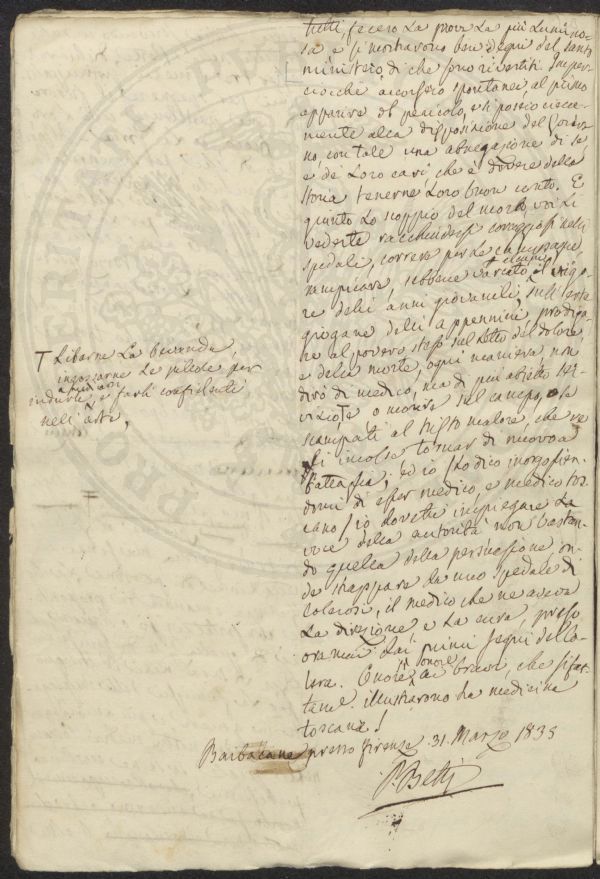 tutti, fecero la prova la più lumino-
sa e si mostrarono ben degni del santo
ministero, di che sono rivestiti. Imper-
ciocchè accorsero spontanei, al primo
apparire del pericolo, e si posero cieca-
mente alla disposizione del Gover-
no, con tale una abnegazione di se
e de' loro cari, che è dovere della
storia tenerne loro buon conto. E
giunto lo scoppio del morbo, voi li
vedeste racchiudersi coraggiosi nelli
spedali, correre per le campagne
rampicare, sebbene varcato il vigo-
re delli anni giovanili, sull'erte
giogane delli appennini, prodiga-
re al povero steso sul letto del dolore,
e della morte, ogni maniera, non
dirò di medico, ma di più abjetto ser-
vizio, T o morire sul campo, o se
scampati al tristo malore, che ve
li incolse tornar di nuovo a
battaglia; ed io (lo dico inorgoglien-
domi di esser medico, e medico tos-
cano) io dovetti impiegare la
voce della autorità non bastan-
do quella della persuasione, on-
de strappare da uno spedale di
colerosi, il medico che ne aveva
la direzione e la cura, preso
oramai dai primi segni del co-
lera. Onore, onore ai bravi che sifat-
tame. illustrarono la medicina
toscana!
T Libarne la bevanda,
ingozzarne le pillole per
indurli, e farli confidenti
nell'arte,
Barbacane presso Firenze 31. Marzo 1835
P. Betti
PRO VERITATE